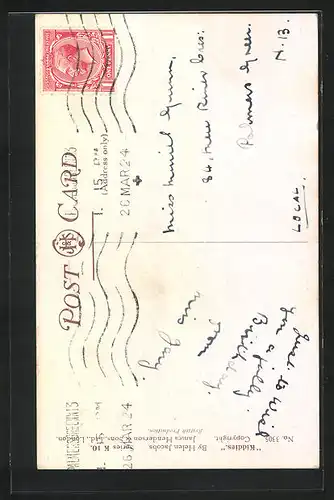 POST CARD
(Address only)
1. 15 PM
26 MAR 24
PALMERS GREEN N13
1. 15 PM
26 MAR 24
ONE PENNY
Miss Muriel Gunn,
84, New River Cres:
Palmers Green.
N. 13.
LOCAL.
Just to wish
you a jolly
Birthday.
from
"Kiddies."
By Helen Jacobs.
Series K 10.
No. 3305
Copyright.
James Henderson & Sons, Ltd., London.
British Production.